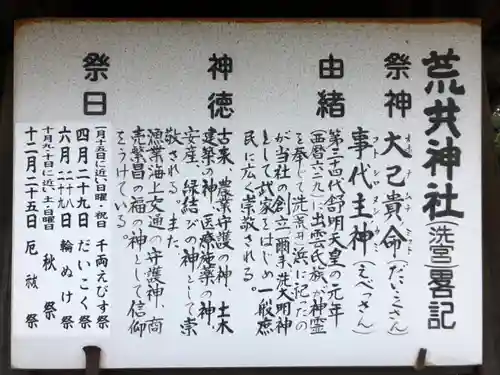 荒井神社(洗宮)畧記
祭神
大己貴命(だいこくさん)
オオナムチミコト
事代主神(えべっさん)
コトシロヌシノカミ
由緒
第三十四代舒明天皇の元年
(西暦六二九)に出雲氏族が神霊
を奉じて洗(荒井)浜に祀たの
が当社の創立、爾耒、洗大明神
として武家をはじめ一般庶
民に広く崇敬される。
神徳
古来、農業守護の神、土木
建築の神、医療施薬の神、
安産、縁結びの神として崇
敬される。また、
漁業海上交通の守護神、商
売繁昌の福の神として信仰
をうけている。
祭日
一月十五日に近い日曜・祝日 千両えびす祭
四月二十九日 だいこく祭
六月二十九日 輪ぬけ祭
十月九十日に近い土・日曜日 秋祭
十二月二十五日 厄祓祭